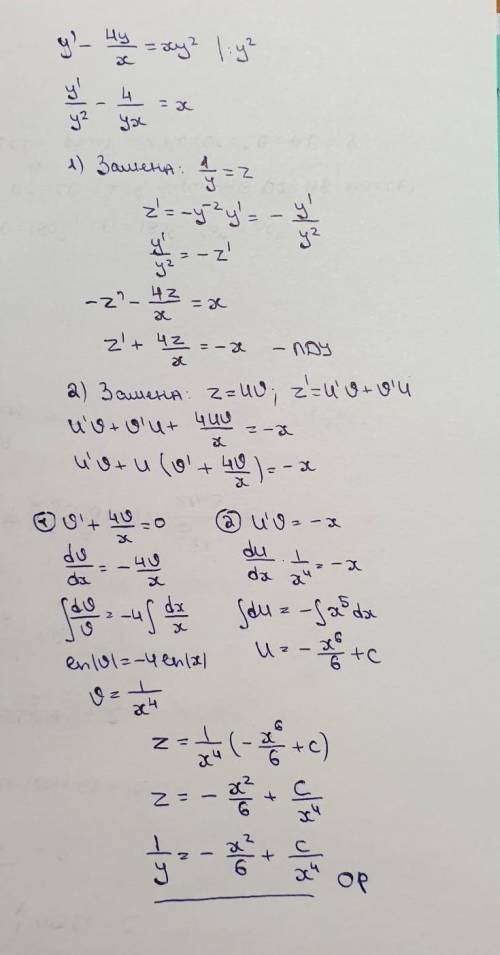 y' - 4y/x = xy² |:y²
y'/y² - 4/yx = x
1) Замена: 1/y = z
z' = -y⁻²y' = - y'/y²
y'/y² = -z'
-z' - 4z/x = x
z' + 4z/x = -x - ЛДУ
2) Замена: z = uv; z' = u'v + v'u
u'v + v'u + 4uv/x = -x
u'v + u (v' + 4v/x) = -x
① v' + 4v/x = 0
dv/dx = - 4v/x
∫ dv/v = -4 ∫ dx/x
ln|v| = -4 ln|x|
v = 1/x⁴
② u'v = -x
du/dx · 1/x⁴ = -x
∫du = -∫x⁵dx
u = - x⁶/6 + c
z = 1/x⁴ (- x⁶/6 + c)
z = - x²/6 + c/x⁴
1/y = - x²/6 + c/x⁴ ОР